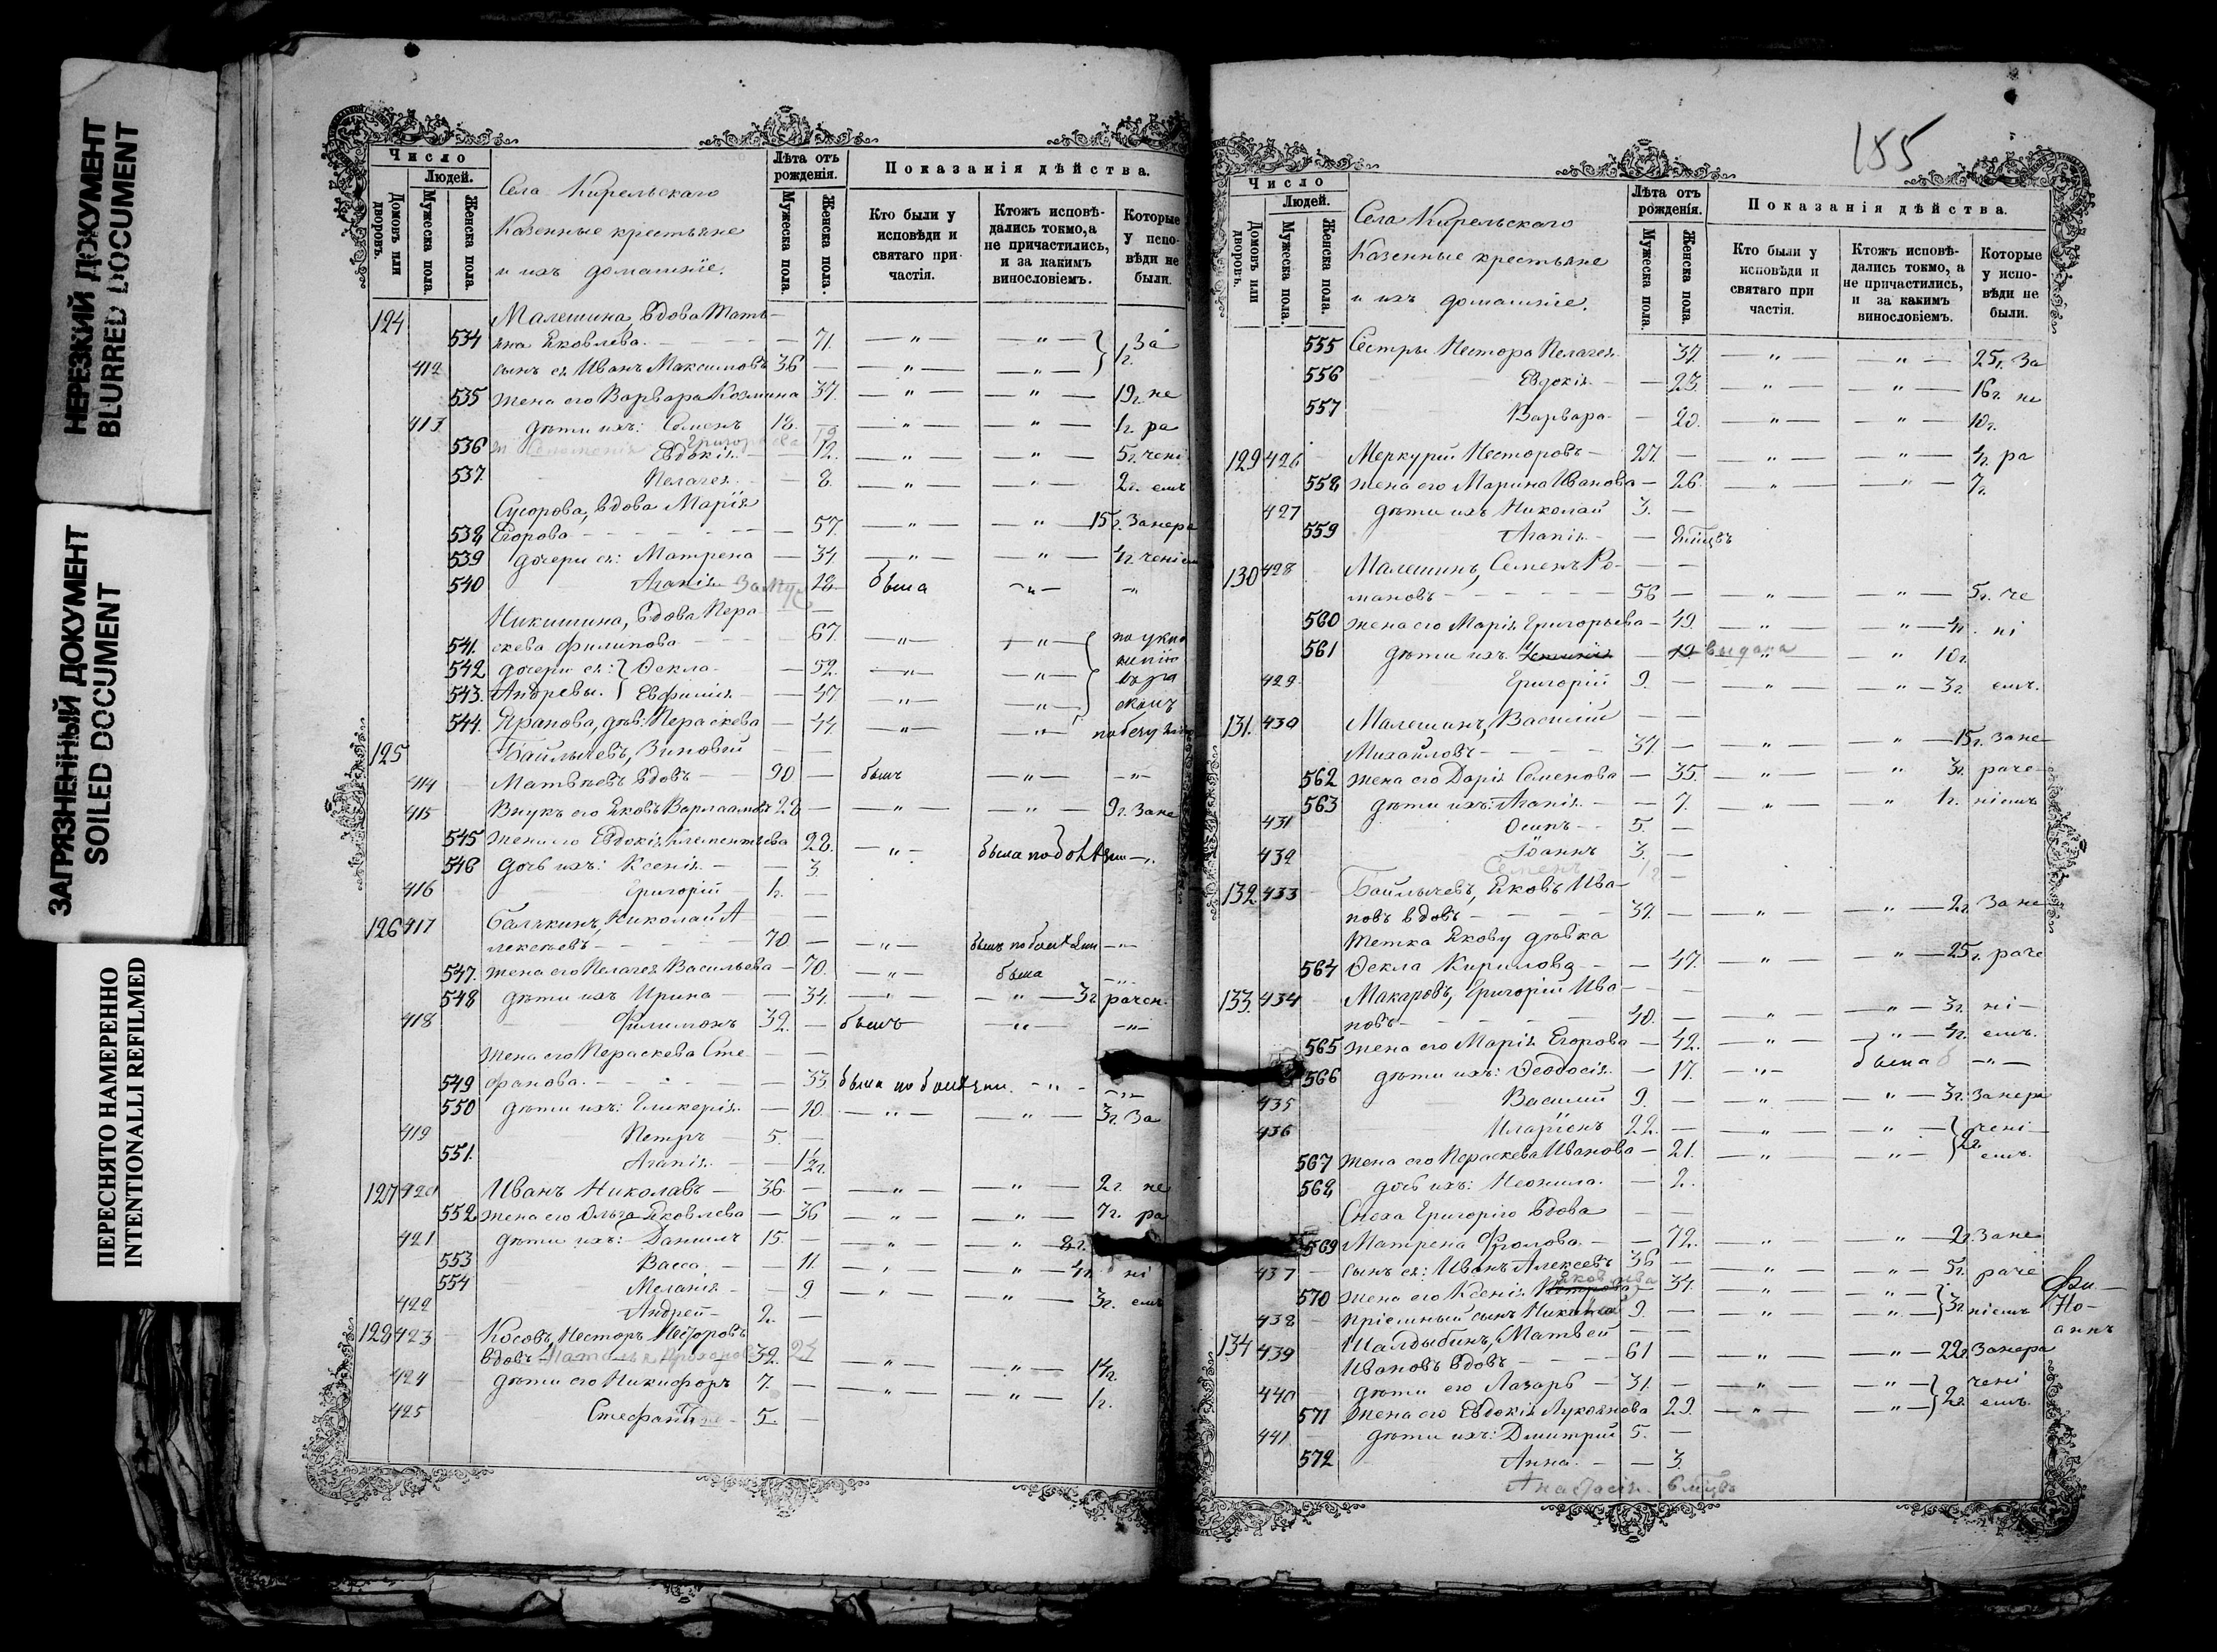 НЕРЕЗКИЙ ДОКУМЕНТ
BLURRED DOCUMENT
ЗАГРЯЗНЕННЫЙ ДОКУМЕНТ
SOILED DOCUMENT
ПЕРЕСНЯТО НАМЕРЕННО
INTENTIONALLI REFILMED
Число
Людей.
Домовъ или дворовъ.
Мужеска пола.
Женска пола.
Села Кирельскаго
Казенные крестьяне
и ихъ домашніе.
Лѣта отъ рожденія.
Мужеска пола.
Женска пола.
Показанія дѣйства.
Кто были у исповѣди и святаго при-частія.
Ктожъ исповѣ-дались токмо, а не причастились, и за какимъ винословіемъ.
Которые у испо-вѣди не были.
124 Малешина, вдова Татъ-
534 яна Яковлева 71. За
412 сынъ ея Иванъ Максимовъ 36 1г.
535 жена его Варвара Козмина 37. 19г. не
413 дѣти ихъ: Семенъ 18. 1г. ра
536 Евдокія 12. 5г. чені
537. Пелагея 8. 2г. емъ
Сусорова, вдова Марія
538 Егорова 57. 15г. Занера
539 дочери ея: Матрена 34. 4г. ченіем
540 Агапія 18 была
Никишина, вдова Пера-
541. скева Филипова 67.
542 дочери ея: Ѳекла 52.
543. Андреевы. Евфимія 47
544. Храпова, дѣв: Пераскева 44.
125 Баймычевъ, Зиновей
414 Матвѣевъ вдовъ 90 былъ
415 Внукъ его Яковъ Варлаамовъ 28 9г. Зане
545 Жена его Евдокія Клементьева 28. была по болѣзни
546 дочь ихъ: Ксенія 3
416 Григорій 1г.
126 417 Балыкинъ, Николай А-
лексѣевъ 70. былъ по болѣзни
547. жена его Пелагея Васильева 70. была
548 дѣти ихъ Ирина 34. 3г. рачен.
418 Филимонъ 32. былъ
Жена его Пераскева Сте-
549 фанова 33 была по болѣзни
550 дѣти ихъ: Гликерія 10. 3г. За
419 Петръ 5.
551. Агапія 1½г.
127 420 Иванъ Николавъ 36. 2г. не
552 жена его Ольга Яковлева 36 7г. ра
421 дѣти ихъ: Даниилъ 15.
553 Васса 11. 4г. ні
554 Меланія 9 3г. емъ
422 Андрей 2.
128 423 Косовъ, Несторъ Несторовъ
вдовъ 32. 14г.
424 дѣти его Никифоръ 7. 1г.
425 Стефанъ 5
155
Число
Людей.
Домовъ или дворовъ.
Мужеска пола.
Женска пола.
Села Кирельскаго
Казенные крестьяне
и ихъ домашніе.
Лѣта отъ рожденія.
Мужеска пола.
Женска пола.
Показанія дѣйства.
Кто были у исповѣди и святаго при частія.
Ктожъ исповѣ-дались токмо, а не причастились, и за какимъ винословіемъ.
Которые у испо-вѣди не были.
555 Сестры Нестора Пелагея 37. 25г. За
556 Евдокія 23. 16г. не
557 Варвара 20. 10г.
129 426 Меркурій Несторовъ 27. 4г. ра
558 жена его Марина Иванова 26. 7г.
427 дѣти ихъ Николай 3.
559 Агапія
130 428 Малешинъ, Семенъ Ро-
мановъ 56 5г. че
560 жена его Марія Григорьева 49. 4г. ні
561 дѣти ихъ 19 выдана 10г.
429 Григорій 9. 3г. емъ.
131. 430 Малешинъ, Василій
Михайловъ 37. 15г. Зане
562 жена его Дарія Семенова 35. 3г. раче
563 дѣти ихъ: Агапія 7. 1г. ніемъ
431 Осипъ 5.
432 Іоаннъ 3.
Семенъ
132 433 Баймычевъ, Яковъ Ива-
новъ вдовъ 37. 2г. Зане
Тетка Якову дѣвка
564 Ѳекла Кирилова 47. 25г. раче
133 434 Макаровъ, Григорій Ива-
новъ 40. 3г. ні
565 жена его Марія Егорова 42. 4г. емъ.
566 дѣти ихъ: Ѳеодосія 17. была
435 Василій 9. 3г. Занера
436 Иларіонъ 22. чені
567 жена его Пераскева Иванова 21. 2г. емъ.
568 дочь ихъ: Неонила 2.
Сноха Григорію вдова
569 Матрена Фролова 72. 2г. Зане
437 сынъ ея: Иванъ Алексеевъ 36 5г. раче
570 жена его Ксенія Яковлева 34.
438 пріемный сынъ Николай 9. 3г. ніемъ
134 439 Шалдыбинъ, Матвей
Ивановъ вдовъ 61 22г. Занера
440 дѣти его Лазарь 31. чені
571 жена его Евдокія Лукоянова 29. 2г. емъ.
441 дѣти ихъ: Дмитрій 5.
572 Анна 3
Анастасія 6 мцвъ